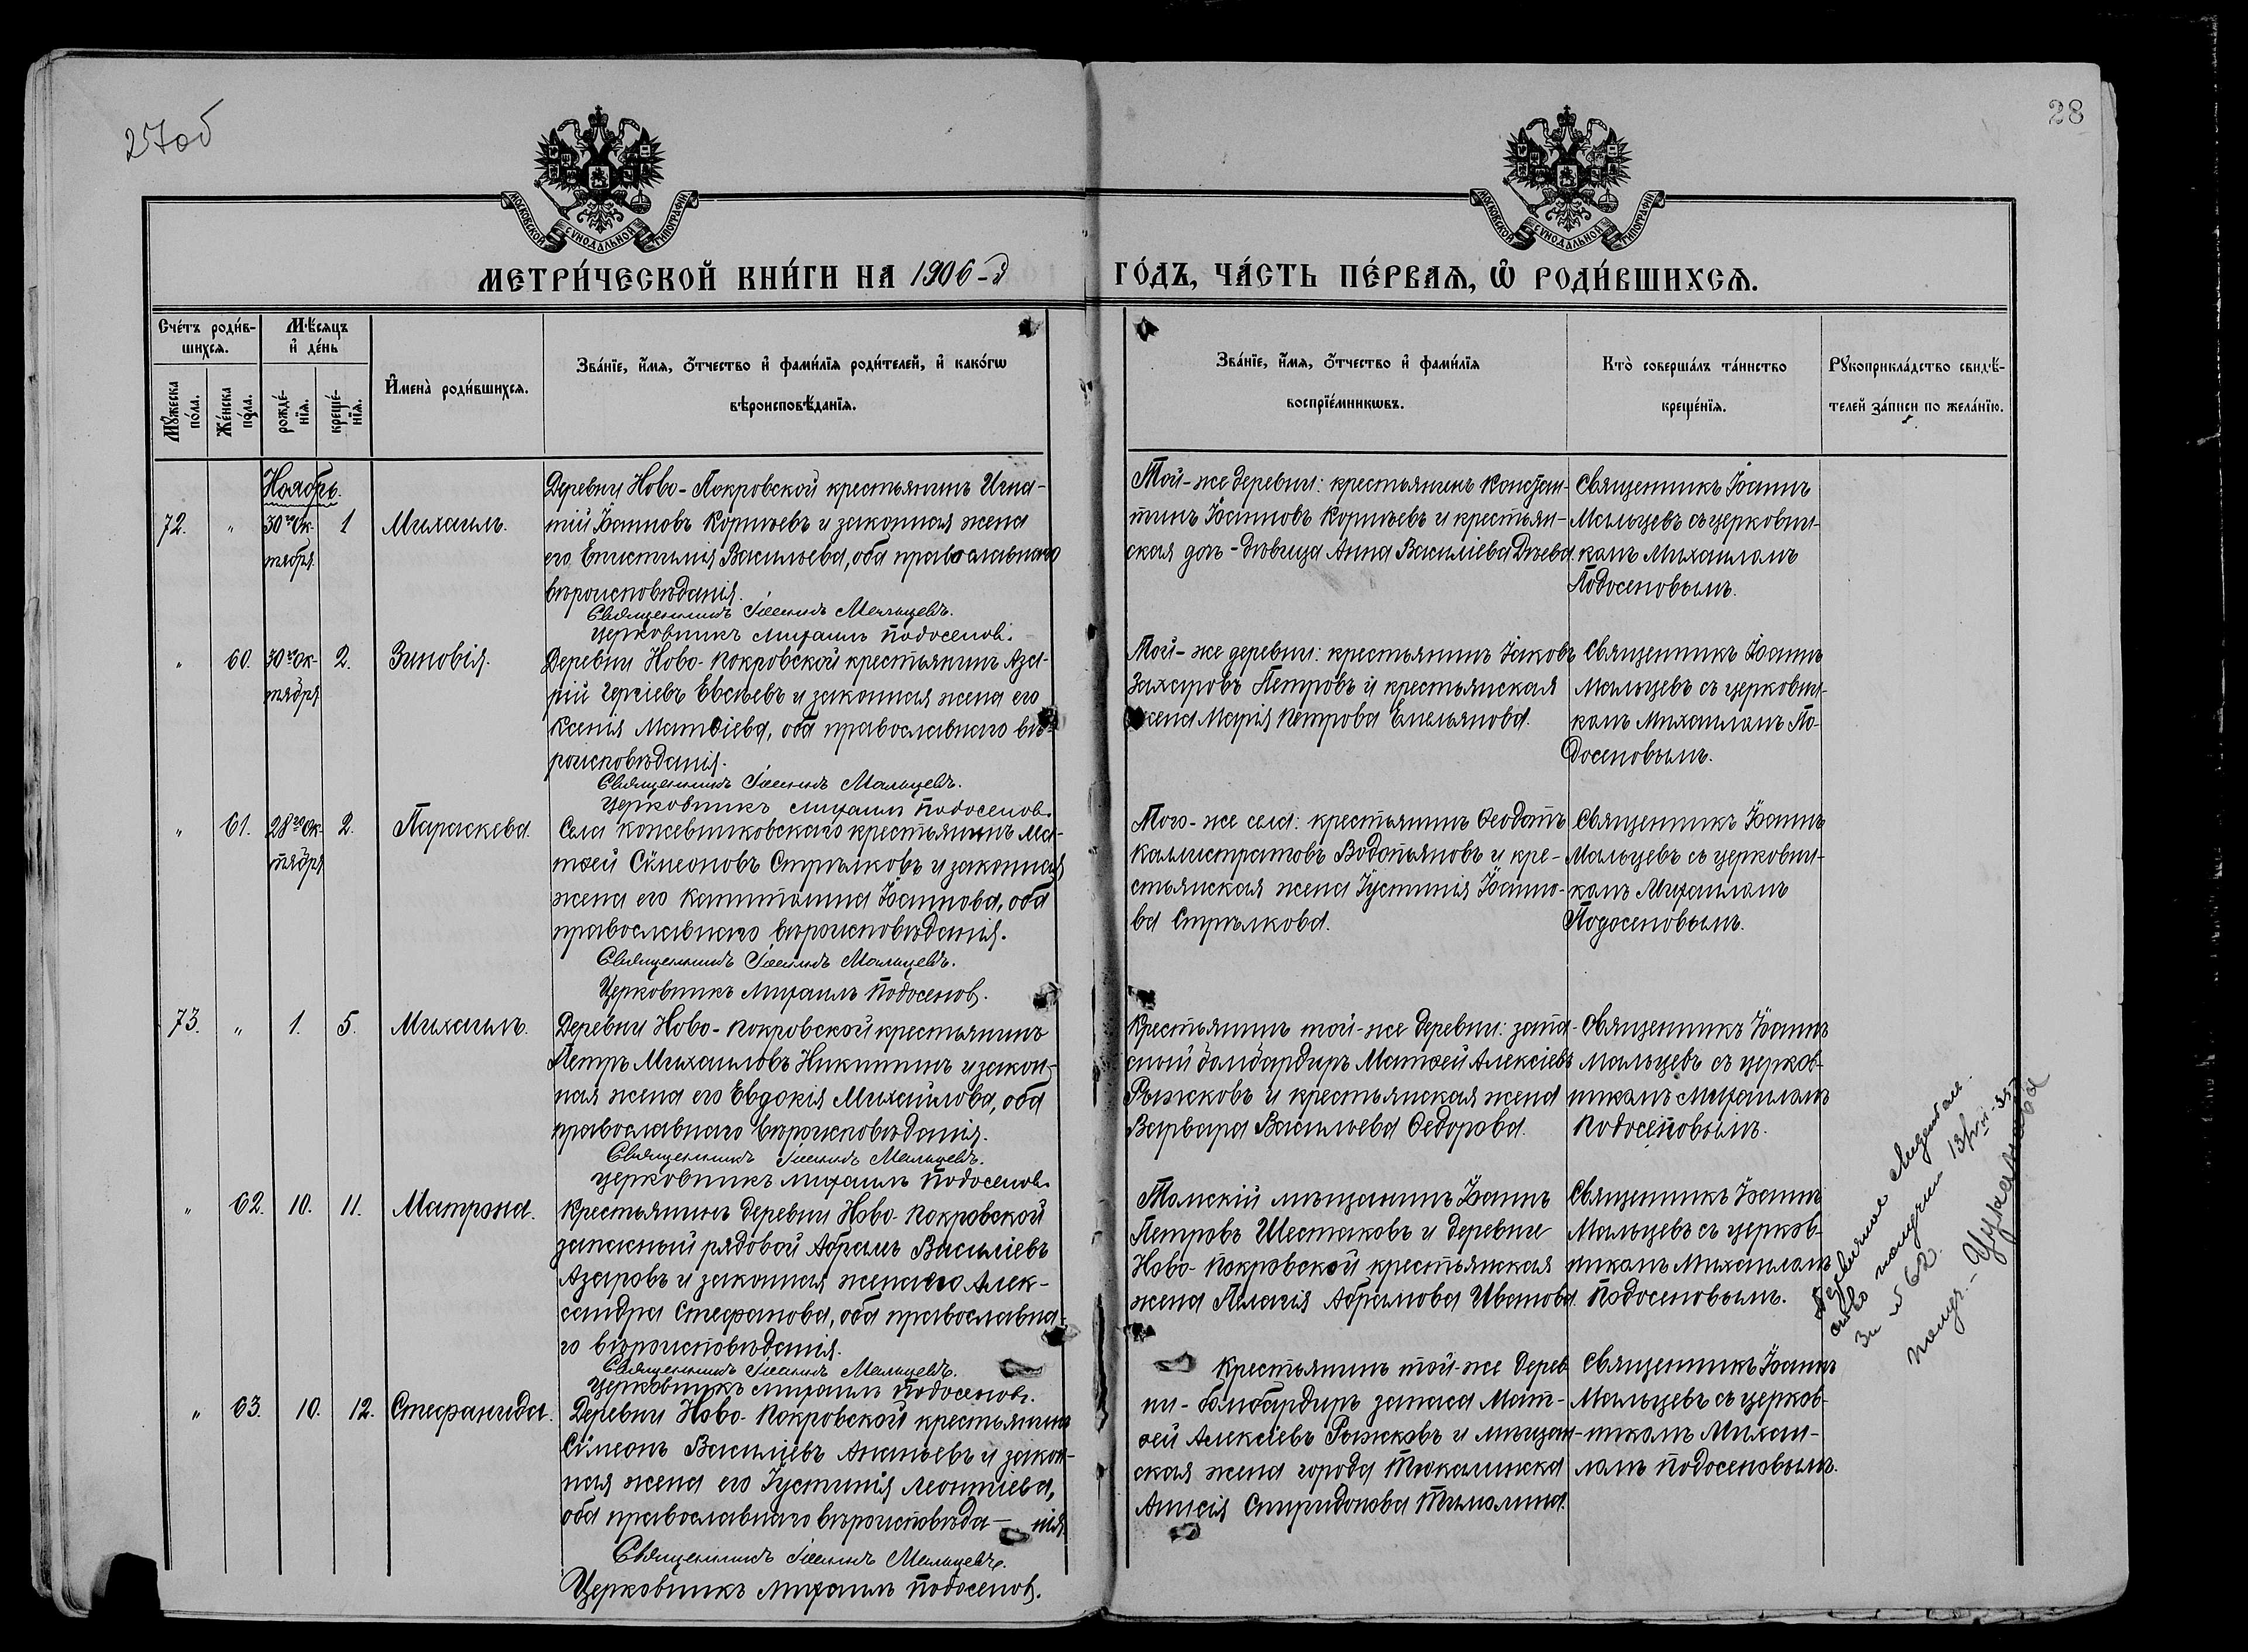 27об
28
МОСКОВСКОЙ СѴНОДАЛЬНОЙ ТИПОГРАФІИ
МОСКОВСКОЙ СѴНОДАЛЬНОЙ ТИПОГРАФІИ
МЕТРИ́ЧЕСКОЙ КНИ́ГИ НА 1906-й ГО́ДЪ, ЧА́СТЬ ПЕ́РВАЯ, Ѡ҆ РОДИ́ВШИХСЯ.
Сче́тъ роди́в-
шихся.
Мѣ́сяцъ
и҆ де́нь
Мꙋ́жеска по́ла.
Же́нска по́ла.
рожде́-
нїя.
креще́-
нїя.
И҆мена̀ роди́вшихся.
Зва́нїе, и҆́мя, ѻ҆́тчество и҆ фами́лїя роди́телей, и҆ како́гѡ
вѣроисповѣ́данїя.
Зва́нїе, и҆́мя, ѻ҆́тчество и҆ фами́лїя
воспрїе́мникѡвъ.
Кто̀ соверша́лъ та́инство
креще́нїя.
Рꙋкоприкла́дство свидѣ́-
телей за́писи по жела́нїю.
Ноябрь.
72. " 30го Ок-
тября. 1 Михаилъ.
Деревни Ново-Покровской крестьянинъ Игна-
тій Іоанновъ Корнѣевъ и законная жена
его Епистимія Васильева, оба православнаго
вѣроисповѣданія.
Священникъ Іоаннъ Мальцевъ.
Церковникъ Михаилъ Подосенов.
Той-же деревни: крестьянинъ Констан-
тинъ Іоанновъ Корнѣевъ и крестьян-
ская дочь-дѣвица Анна Василіева
Священникъ Іоаннъ
Мальцевъ съ церковни-
комъ Михаиломъ
Подосеновымъ.
" 60. 30го Ок-
тября 2. Зиновія.
Деревни Ново-Покровской крестьянинъ Аза-
рій Евсѣевъ и законная жена его
Ксенія Матѳіева, оба православнаго вѣ-
роисповѣданія.
Священникъ Іоаннъ Мальцевъ.
Церковникъ Михаилъ Подосенов.
Той-же деревни: крестьянинъ Іаковъ
Захаровъ Петровъ и крестьянская
жена Марія Петрова Емельянова.
Священникъ Іоаннъ
Мальцевъ съ церковни-
комъ Михаиломъ По-
досеновымъ.
" 61. 28го Ок-
тября 2. Параскева.
Села Кожевниковскаго крестьянинъ Ма-
тѳей Сѵмеоновъ Стрѣлковъ и законная
жена его Капитолина Іоаннова, оба
православнаго вѣроисповѣданія.
Священникъ Іоаннъ Мальцевъ.
Церковникъ Михаилъ Подосенов.
Того-же села: крестьянинъ Ѳеодотъ
Каллистратовъ Водопьяновъ и кре-
стьянская жена Іустинія Іоанно-
ва Стрѣлкова.
Священникъ Іоаннъ
Мальцевъ съ церковни-
комъ Михаиломъ
Подосеновымъ.
73. " 1. 5. Михаилъ.
Деревни Ново-Покровской крестьянинъ
Петръ Михаиловъ Никитинъ и закон-
ная жена его Евдокія Михайлова, оба
православнаго вѣроисповѣданія.
Священникъ Іоаннъ Мальцевъ.
Церковникъ Михаилъ Подосенов.
Крестьянинъ той-же деревни: запа-
сный бомбардиръ Матѳей Алексіевъ
Рыжковъ и крестьянская жена
Варвара Васильева Ѳедорова.
Священникъ Іоаннъ
Мальцевъ съ церков-
никомъ Михаиломъ
Подосеновымъ.
" 62. 10. 11. Матрона.
Крестьянинъ деревни Ново-Покровской
запасный рядовой Абрамъ Василіевъ
Азаровъ и законная жена его Алек-
сандра Стефанова, оба православна-
го вѣроисповѣданія.
Священникъ Іоаннъ Мальцевъ.
Церковникъ Михаилъ Подосенов.
Томскій мѣщанинъ Іоаннъ
Петровъ Шестаковъ и деревни
Ново-Покровской крестьянская
жена Пелагія Абрамова Иванова.
Священникъ Іоаннъ
Мальцевъ съ церков-
никомъ Михаиломъ
Подосеновымъ.
свидетель-
ство получен
За № 62.
получ.
" 63. 10. 12. Стефанида.
Деревни Ново-Покровской крестьянинъ
Сѵмеонъ Василіевъ Ананьевъ и закон-
ная жена его Іустинія Леонтіева,
оба православнаго вѣроисповѣда-нія.
Священникъ Іоаннъ Мальцевъ.
Церковникъ Михаилъ Подосенов.
Крестьянинъ той-же дерев
ни-бомбардиръ запаса Мат-
ѳей Алексіевъ Рыжковъ и мѣщан-
ская жена города Тюкалинска
Анисія Спиридонова
Священникъ Іоаннъ
Мальцевъ съ церков-
никомъ Михаи-
ломъ Подосеновымъ.